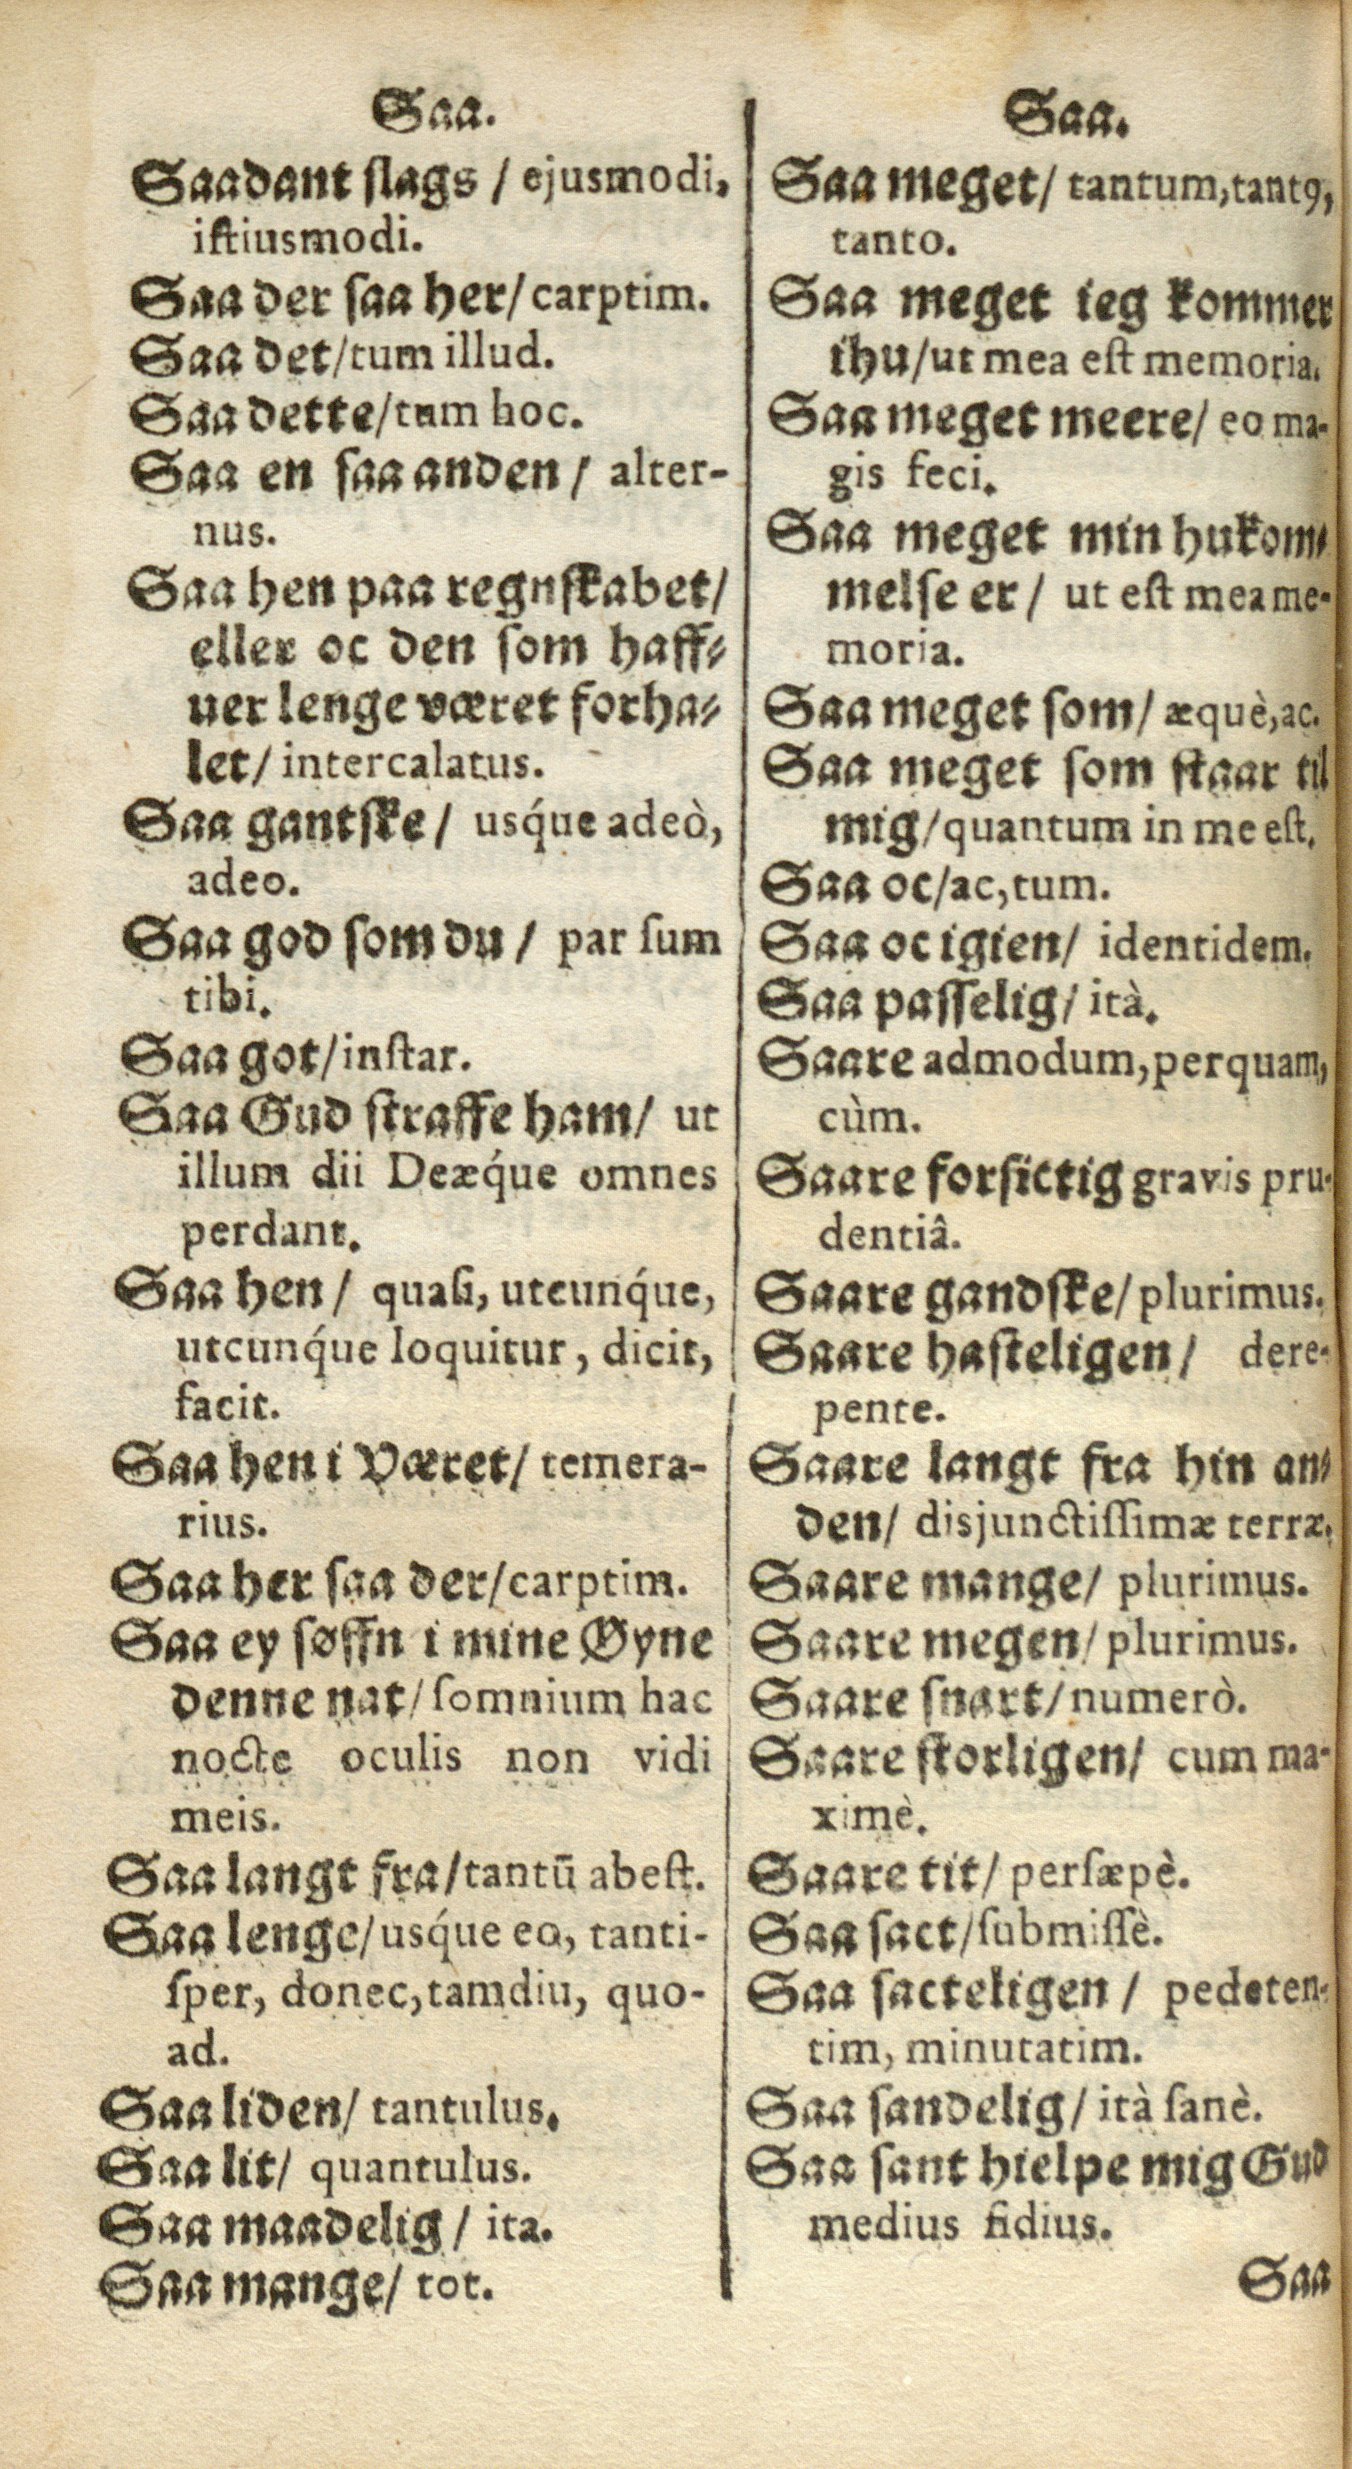 Saa.
Saadant slags / ejusmodi,
iſtiusmodi.
Saa der ſaa her/ carptim.
Saa det/tum illud.
Saa dette/tum hoc.
Saa en ſaa anden / alter-
nus.
Saa hen paa regnſkabet/
eller oc den ſom haff-
uer lenge været forha-
let/ intercalatus.
Saa gantſke / usq́ue adeò,
adeo.
Saa god ſom du / par ſum
tibi.
Saa got/inſtar.
Saa Gud ſtraffe ham/ ut
illum dii Deæq́ue omnes
perdant.
Saa hen / quaſi, utcunq́ue,
utcunq́ue loquitur, dicit,
facit.
Saa hen i Været/ temera-
rius.
Saa her ſaa der/carptim.
Saa ey ſøffn i mine Øyne
denne nat/ ſomnium hac
nocte oculis non vidi
meis.
Saa langt fra/tantū abeſt.
Saa lenge/usq́ue eo, tanti-
ſper, donec, tamdiu, quo-
ad.
Saa liden/ tantulus.
Saa lit/ quantulus.
Saa maadelig / ita.
Saa mange/ tot.
Saa.
Saa meget/ tantum, tantꝰ,
tanto.
Saa meget ieg kommer
ihu/ut mea eſt memoria.
Saa meget meere/ eo ma-
gis feci.
Saa meget min hukom-
melſe er / ut eſt mea me-
moria.
Saa meget ſom/ æquè, ac.
Saa meget ſom ſtaar til
mig/quantum in me eſt.
Saa oc/ac, tum.
Saa oc igien/ identidem.
Saa paſſelig/ ità.
Saare admodum, perquam,
cùm.
Saare forſictig gravis pru-
dentiâ.
Saare gandſke/ plurimus.
Saare haſteligen/ dere-
pente.
Saare langt fra hin an-
den/ disjunctiſſimæ terræ.
Saare mange/ plurimus.
Saare megen/ plurimus.
Saare ſnart/numerò.
Saare ſtorligen/ cum ma-
ximè.
Saare tit/ perſæpè.
Saa ſact/ſubmiſſè.
Saa ſacteligen / pedeten-
tim, minutatim.
Saa ſandelig/ ità ſanè.
Saa ſant hielpe mig Gud
medius fidius.
Saa